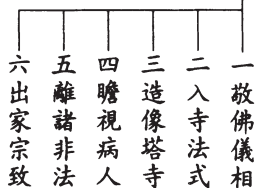 一敬佛儀相
二入寺法式
三造像塔寺
四瞻視病人
五離諸非法
六出家宗致